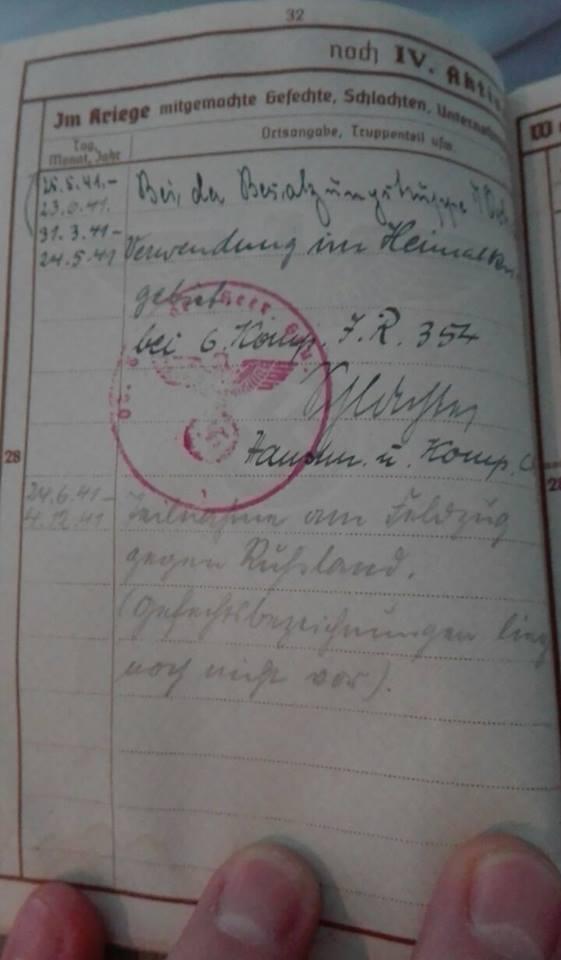 32
noch IV. Akti
Im Kriege mitgemachte Gefechte, Schlachten, Unterne
Tag, Monat, Jahr
Ortsangabe, Truppenteil usw.
Bei der Besatzungstruppe
31.3.41 –
24.5.41 Verwendung im Heimatkr
gebiet
bei 6. Komp. I.R. 354
u. Komp.
28
24.6.41 –
4.12.41 Teilnahme am Feldzug
gegen Rußland.
(Gefechtsbezeichnungen lieg
noch nicht vor).